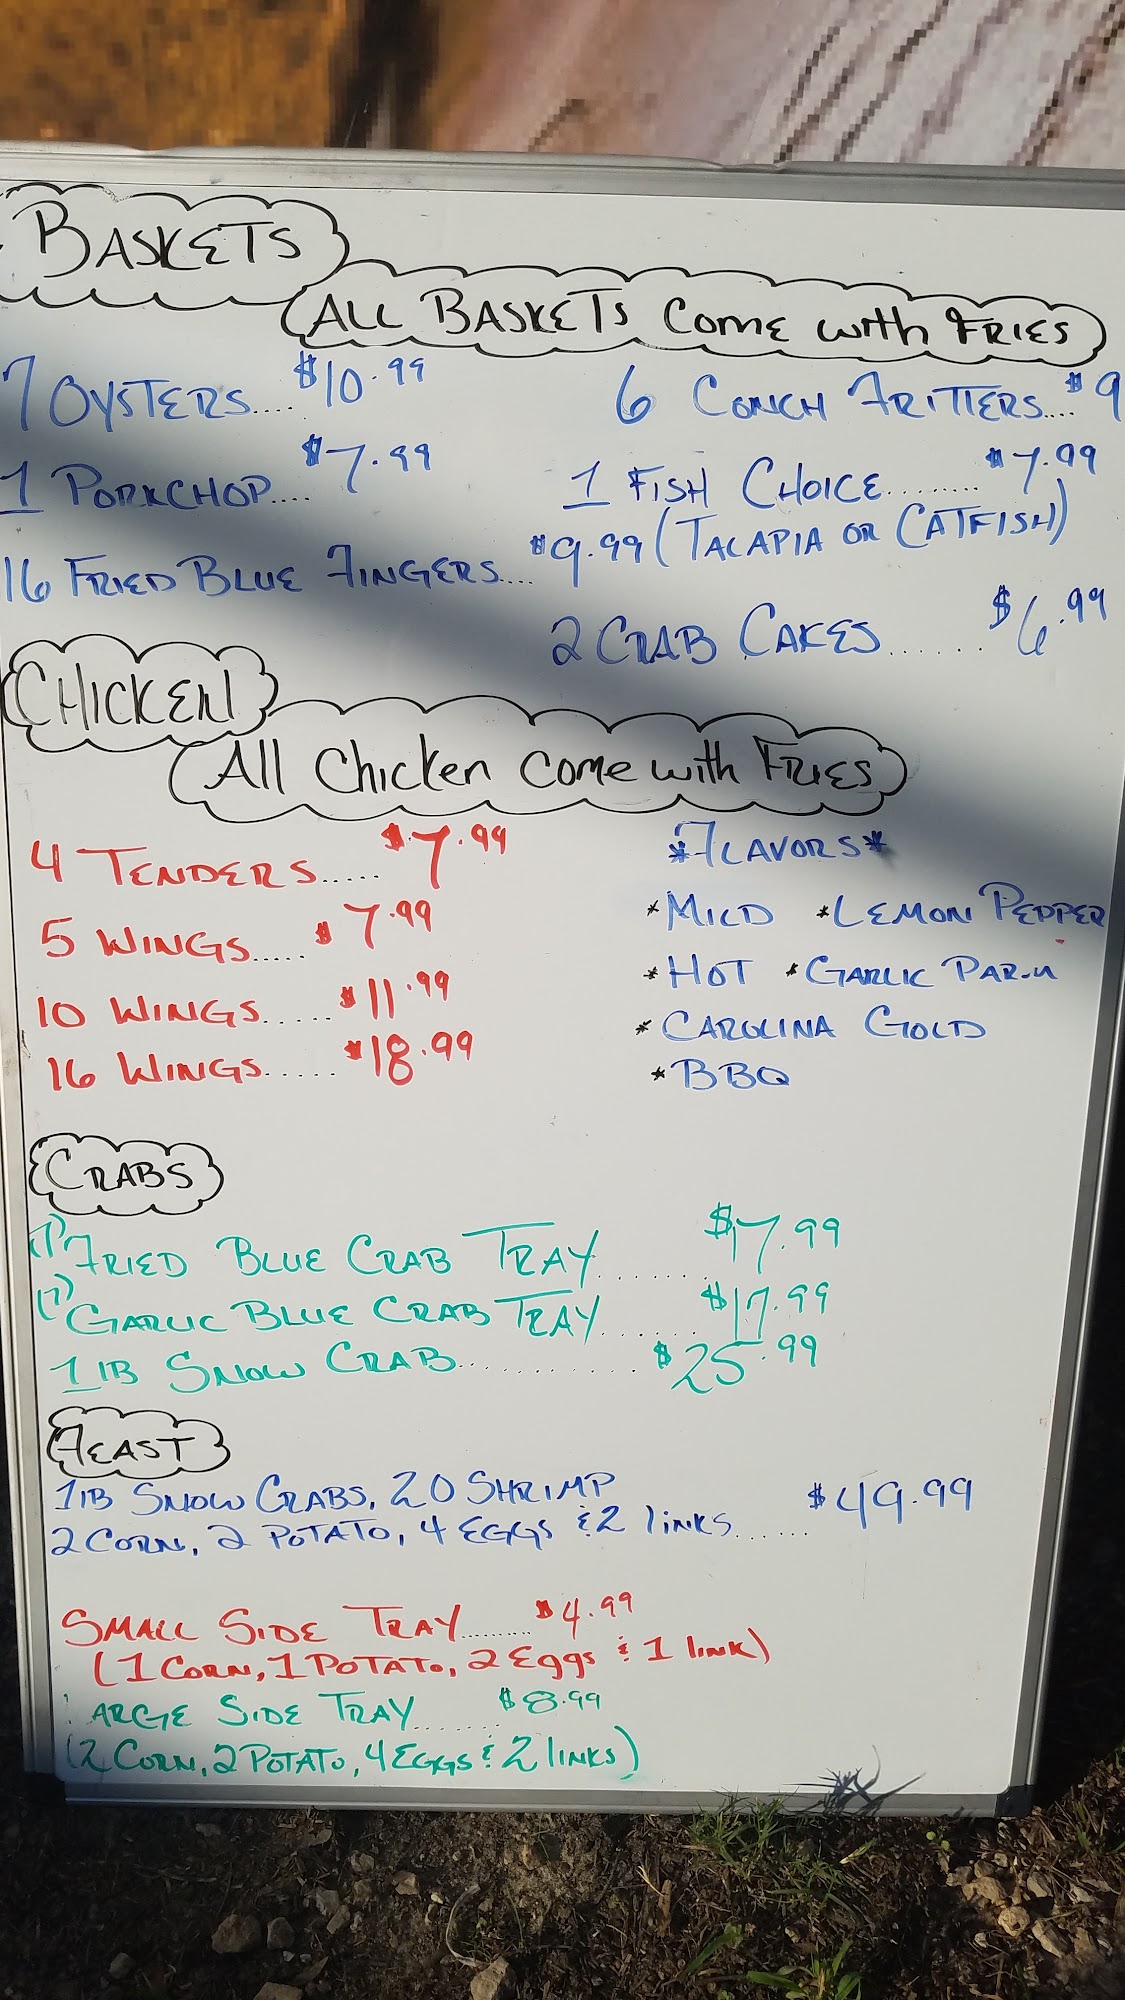 BASKETS
ALL BASKETS COME WITH FRIES
7 OYSTERS.... $10.99
6 CONCH FRITTERS.... $9
1 PORKCHOP.... $7.99
1 FISH CHOICE......... $7.99
(TALAPIA OR CATFISH)
16 FRIED BLUE FINGERS.... $9.99
2 CRAB CAKES...... $6.99
CHICKEN
All Chicken come with FRIES
4 TENDERS..... $7.99
5 WINGS..... $7.99
10 WINGS...... $11.99
16 WINGS...... $18.99
*FLAVORS*
*MILD *LEMON PEPPER
*HOT *GARLIC PARM
*CAROLINA GOLD
*BBQ
CRABS
FRIED BLUE CRAB TRAY....... $17.99
(7) GARLIC BLUE CRAB TRAY....... $17.99
1 lB SNOW CRAB............ $25.99
FEAST
1 lB SNOW CRABS, 20 SHRIMP
2 CORN, 2 POTATO, 4 EGGS & 2 links....... $49.99
SMALL SIDE TRAY........ $4.99
(1 CORN, 1 POTATO, 2 Eggs & 1 link)
LARGE SIDE TRAY........ $8.99
(2 CORN, 2 POTATO, 4 EGGS & 2 links)